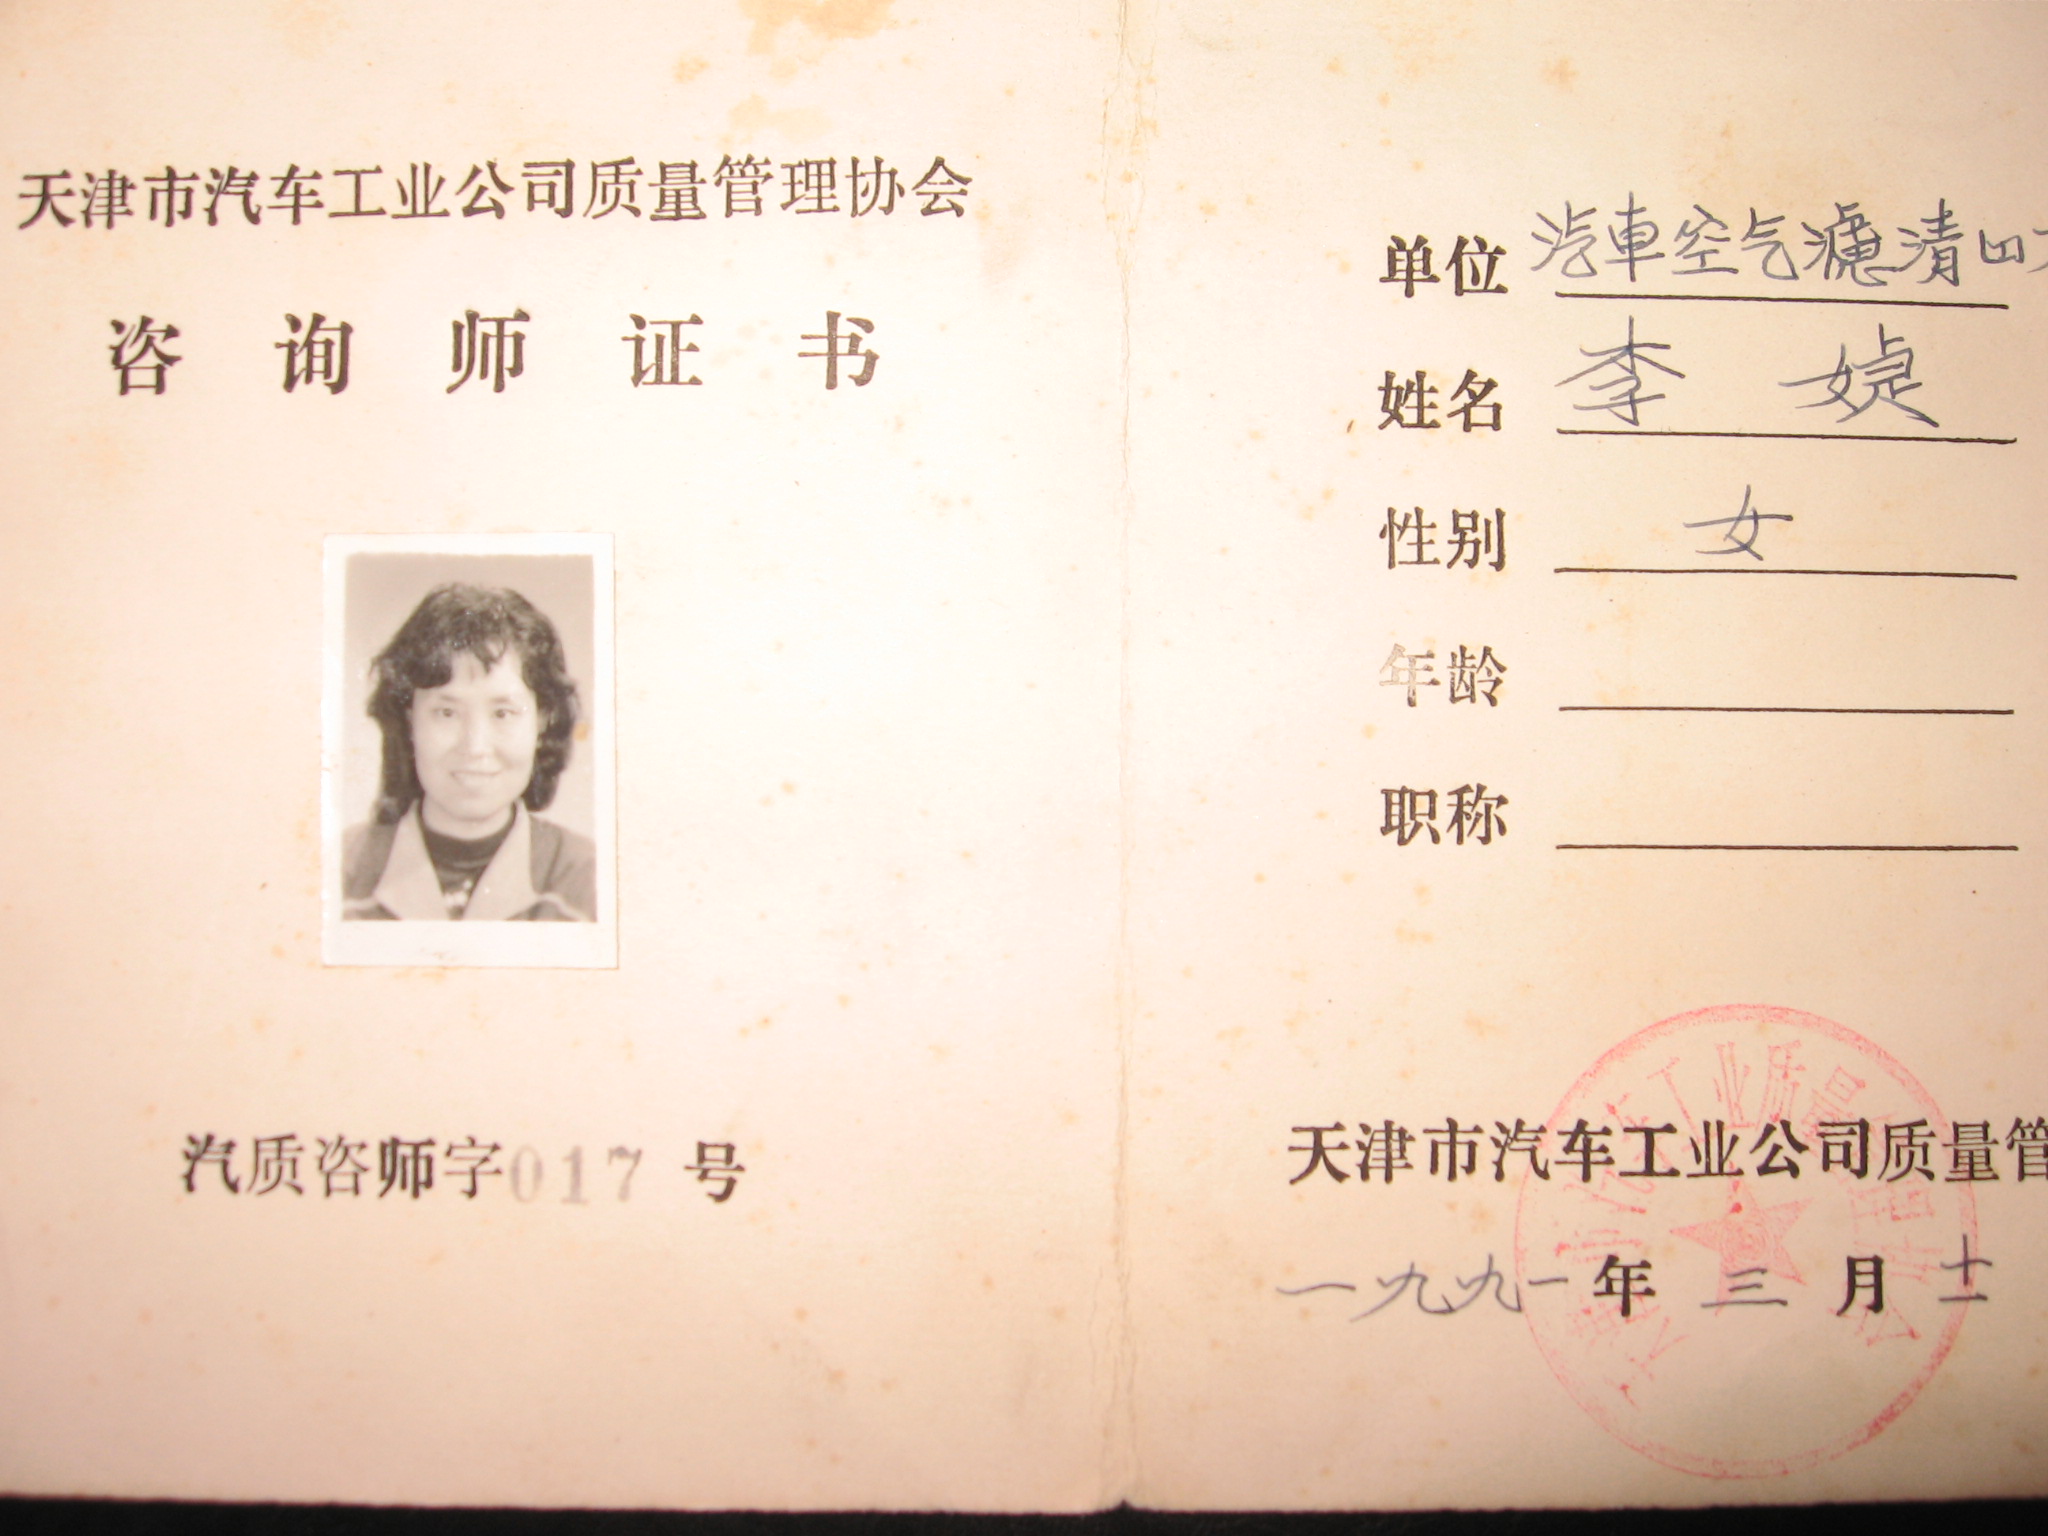 天津市汽车工业公司质量管理协会
咨询师证书
汽质咨师字017号
单位 汽車空气濾清
姓名 李媜
性别 女
年龄
职称
天津市汽车工业公司质量管
一九九一年三月十一